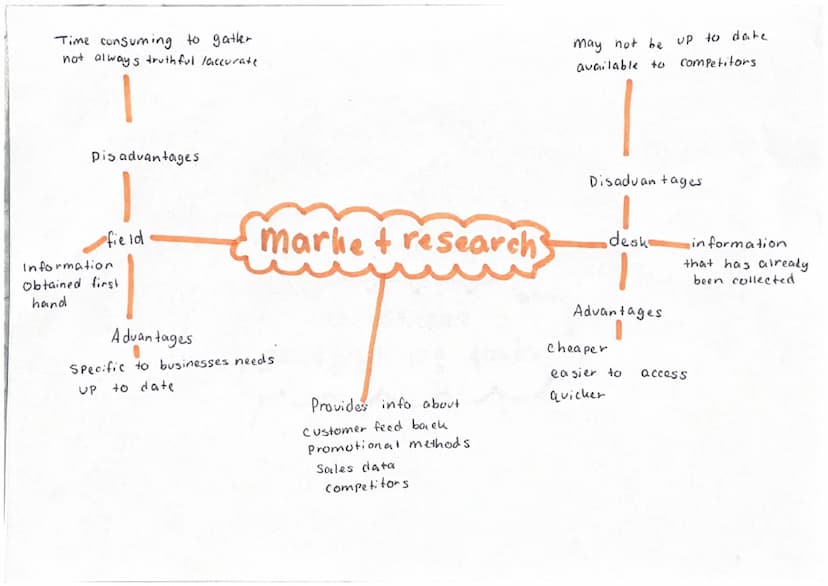 Time consuming to gather
not always truthful /accurate
Disadvantages
field
Information
obtained first
hand
Advantages
Specific to businesses needs
up to date
market research
Provides info about
customer feed back
promotional methods
Sales data
competitors
may not be up to date
available to competitors
Disadvantages
desk
information
that has already
been collected
Advantages
cheaper
easier to access
quicker